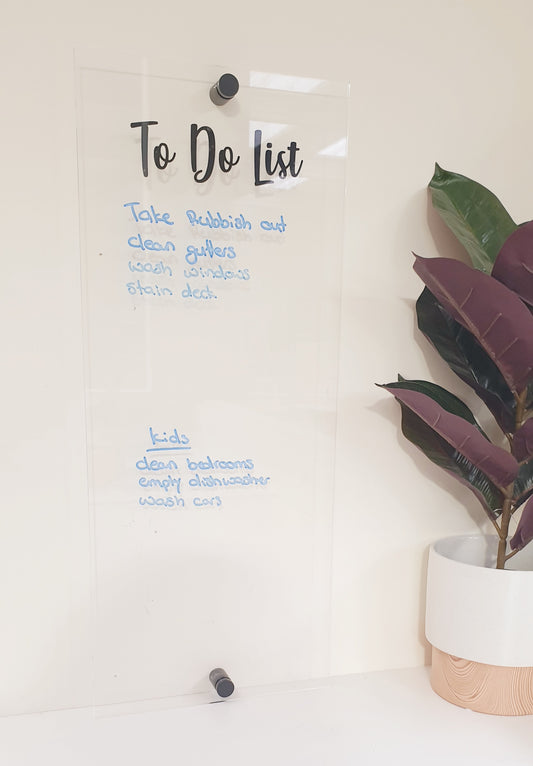 To Do List
Take Rubbish out
clean gutters
wash windows
stain deck
kids
clean bedrooms
empty dishwasher
wash cars